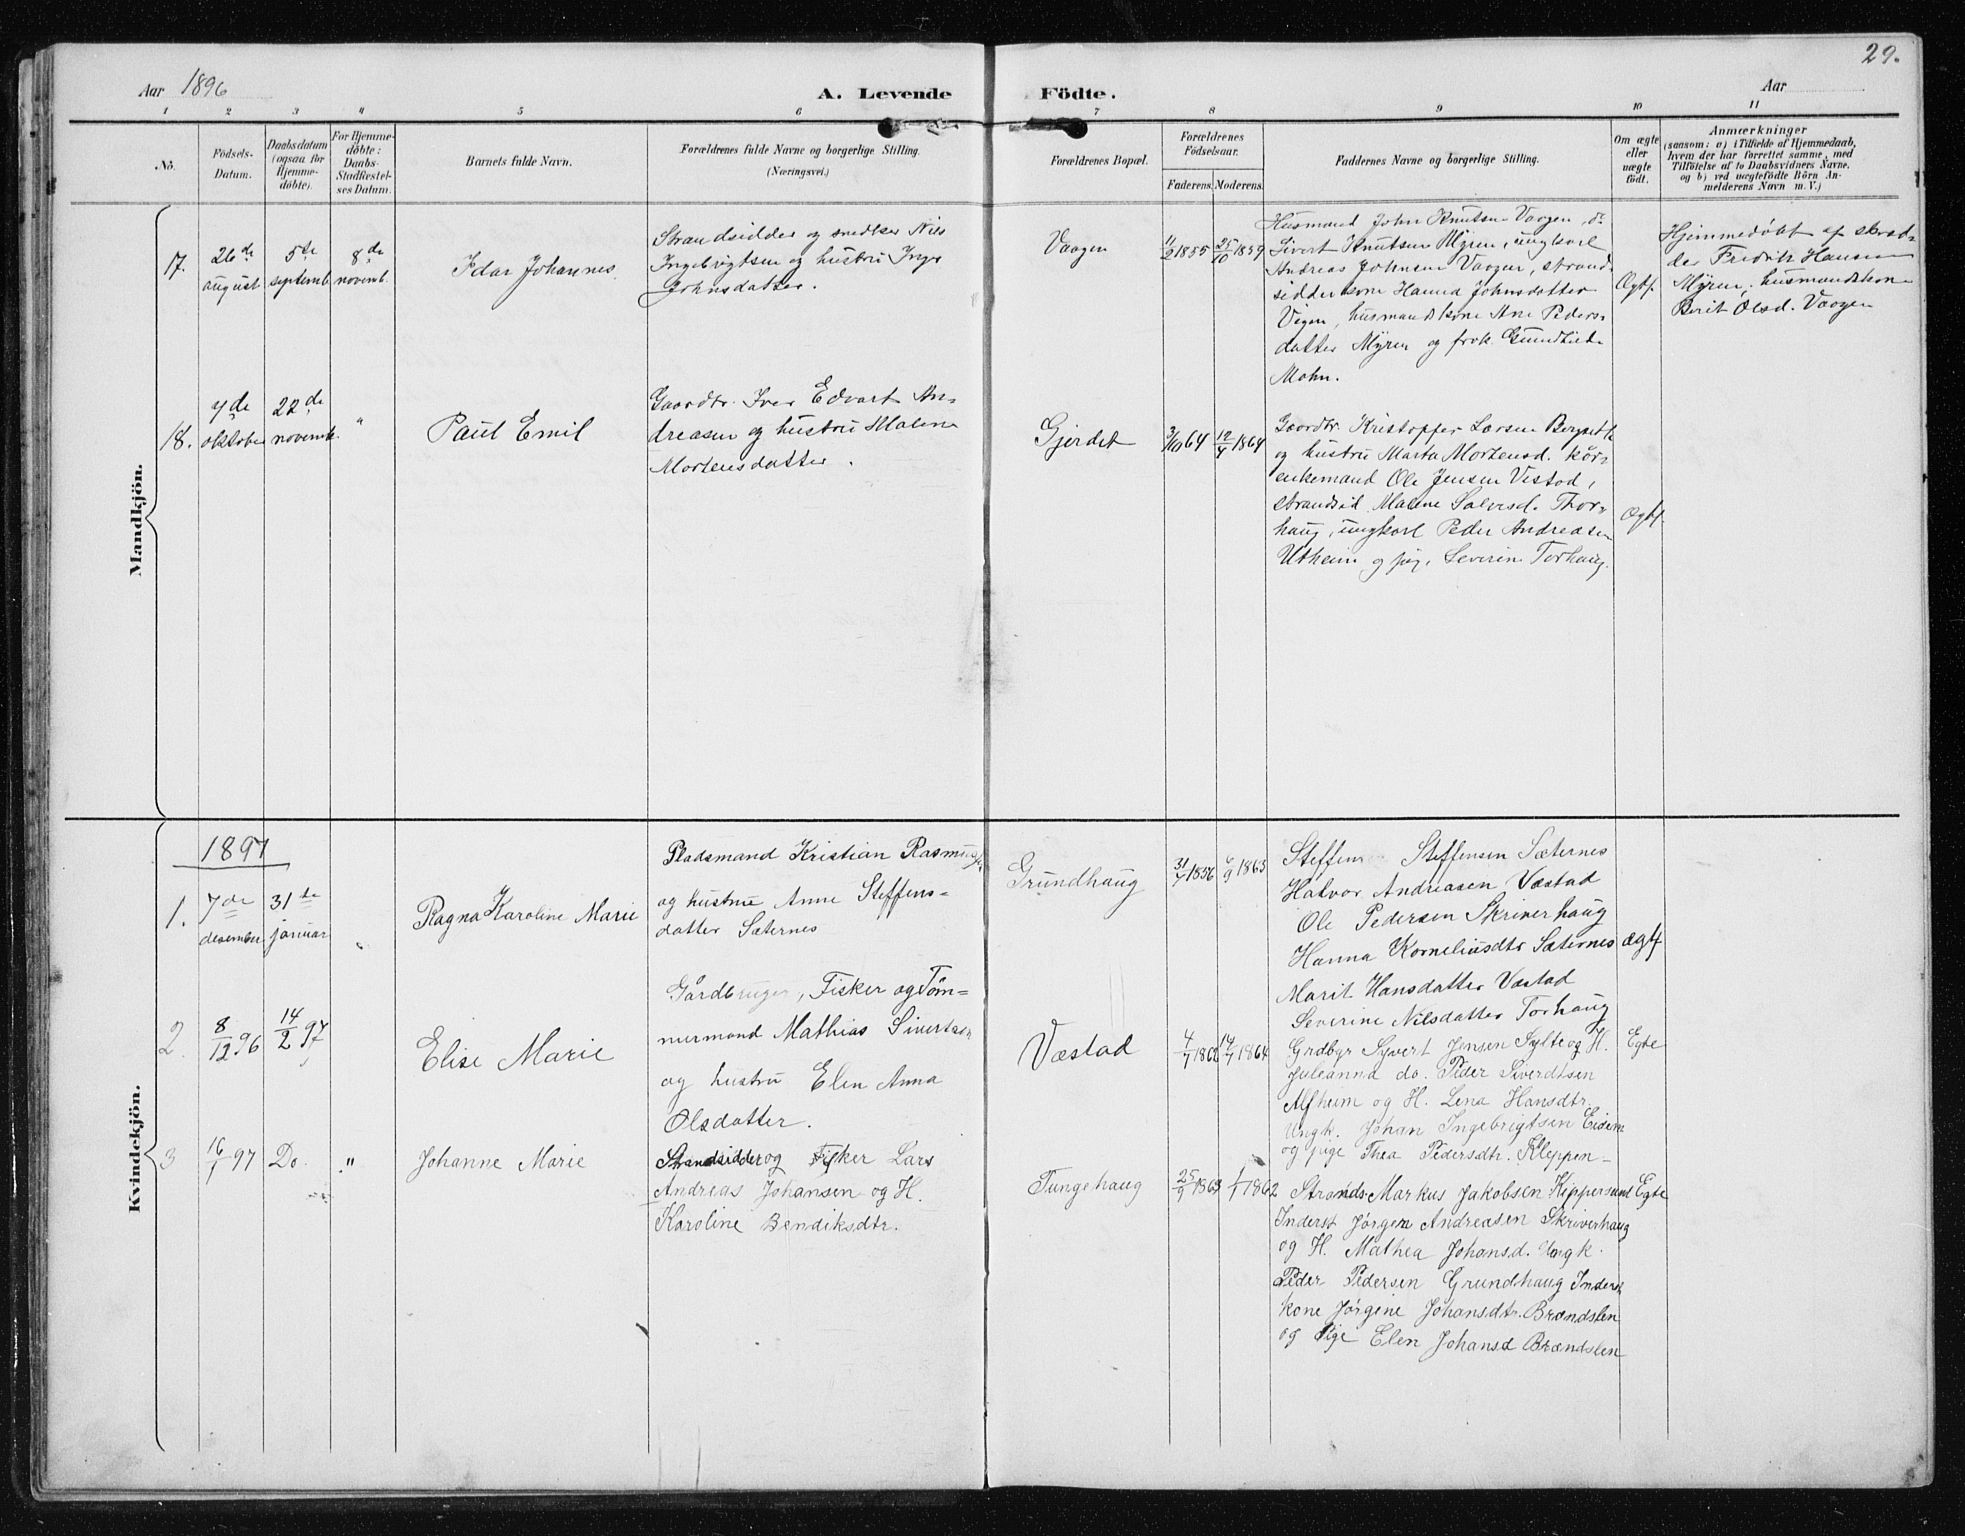 29.
Aar 1896
A. Levende Födte.
Aar
1 2 3 " 5 6 7 8 9 10 11
No.
Födsels-
Datum.
Daabsdatum
(ogsaa for
Hjemme-
döbte).
For Hjemme-
döbte:
Daabs-
Stadfæstel-
ses Datum.
Barnets fulde Navn.
Forældrenes fulde Navne og borgerlige Stilling.
(Næringsvei.)
Forældrenes Bopæl.
Forældrenes
Födselsaar.
Faderens. Moderens.
Faddernes Navne og borgerlige Stilling.
Om ægte
eller
uægte
født.
Anmærkninger
(saasom: a) i Tilfælde af Hjemmedaab,
hvem der har forrettet samme, med
Tilföielse af to Daabsvidners Navne,
og b) ved uægtefödte Börn An-
melderens Navn m. V.)
Mandkjön.
17.
26de
august
5te
septemb.
8de
novemb.
Idar Johannes.
Strandsidder og snedker Nils
Ingebrigtsen og hustru Inger
Johnsdatter.
Vaagen
11/2 1855
25/10 1859
Husmand John Knutsen Vaagen, do
Sivert Knutsen Myren, ungkarl
Andreas Johnsen Vaagen, strand-
sidderkone Hanna Johnsdatter
Vigen, husmandskone Ane Peders-
datter Myren og frøk. Gundhild
Mohn.
Ægtf.
Hjemmedøbt af skræd-
der Fredrik Hansen
Myren, husmandskone
Berit Olsd. Vaagen
18.
7de
oktober
22de
novemb.
"
Paul Emil
Gaardbr. Iver Edvart An-
dreasen og hustru Malene
Mortensdatter.
Gjerdet
3/10 64
12/4 1864
Gaardbr. Kristoffer Larsen Bergsett
og hustru Marta Mortensd. kår-
enkemand Ole Jensen Vestad,
strandsid. Malene Salvesd. Thor-
haug, ungkarl Peder Andreasen
Utheim og pig. Severin Torhaug.
Ægtf.
Kvindekjön.
1897
1.
7de
desember
31te
januar
Ragna Karoline Marie
Pladsmand Kristian Rasmussen
og hustru Anne Steffens-
datter Sæternes
Grundhaug
31/7 1856
6/9 1863
Steffen Steffensen Sæternes
Halvor Andreasen Væstad
Ole Pedersen Skriverhaug
Hanna Korneliusdtr Sæternes
Marit Hansdatter Væstad
Severine Nilsdatter Torhaug
ægtf
2.
8/12 96
14/2 97
Elise Marie
Gårdbruger, Fisker og Tøm-
mermand Mathias Sivertsen
og hustru Elen Anna
Olsdatter.
Væstad
4/7 1862
14/7 1864
Grdbgr Syvert Jensen Sylte og H.
Juleanna do. Peder Siverdtsen
Alfheim og H. Lena Hansdtr.
Ungk. Johan Ingebrigtsen Eidem
og pige Thea Pedersdtr. Kleppen-
Egte
3
16/1 97
Do.
"
Johanne Marie
Strandsidder og Fisker Lars
Andreas Johansen og H.
Karoline Bendiksdtr.
Tungehaug
25/9 1863
1/1 1862
Strands. Markus Jakobsen Kippersund
Inderst Jørgen Andreasen Skriverhaug
og H. Mathea Johansd. Ungk.
Peder Pedersen Grundhaug Inderst
kone Jørgine Johansdtr. Brændslen
og Pige Elen Johansd Brændslen
Egte